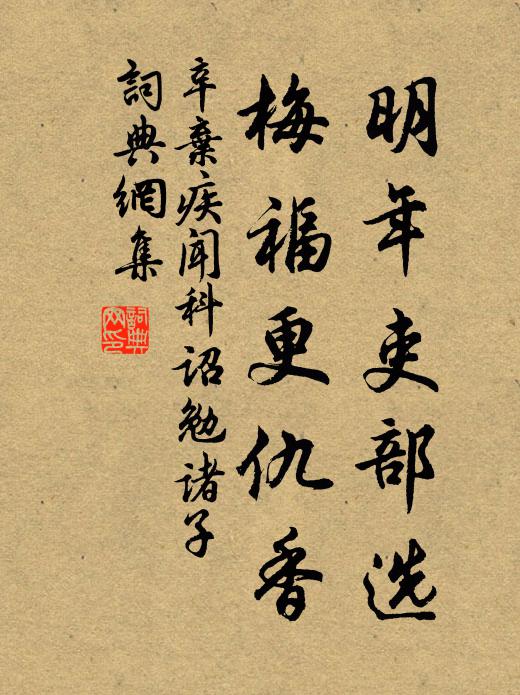 明年吏部选
梅福更仇香
辛棄疾闻科诏勉诸子
詞典網集
詞典网印